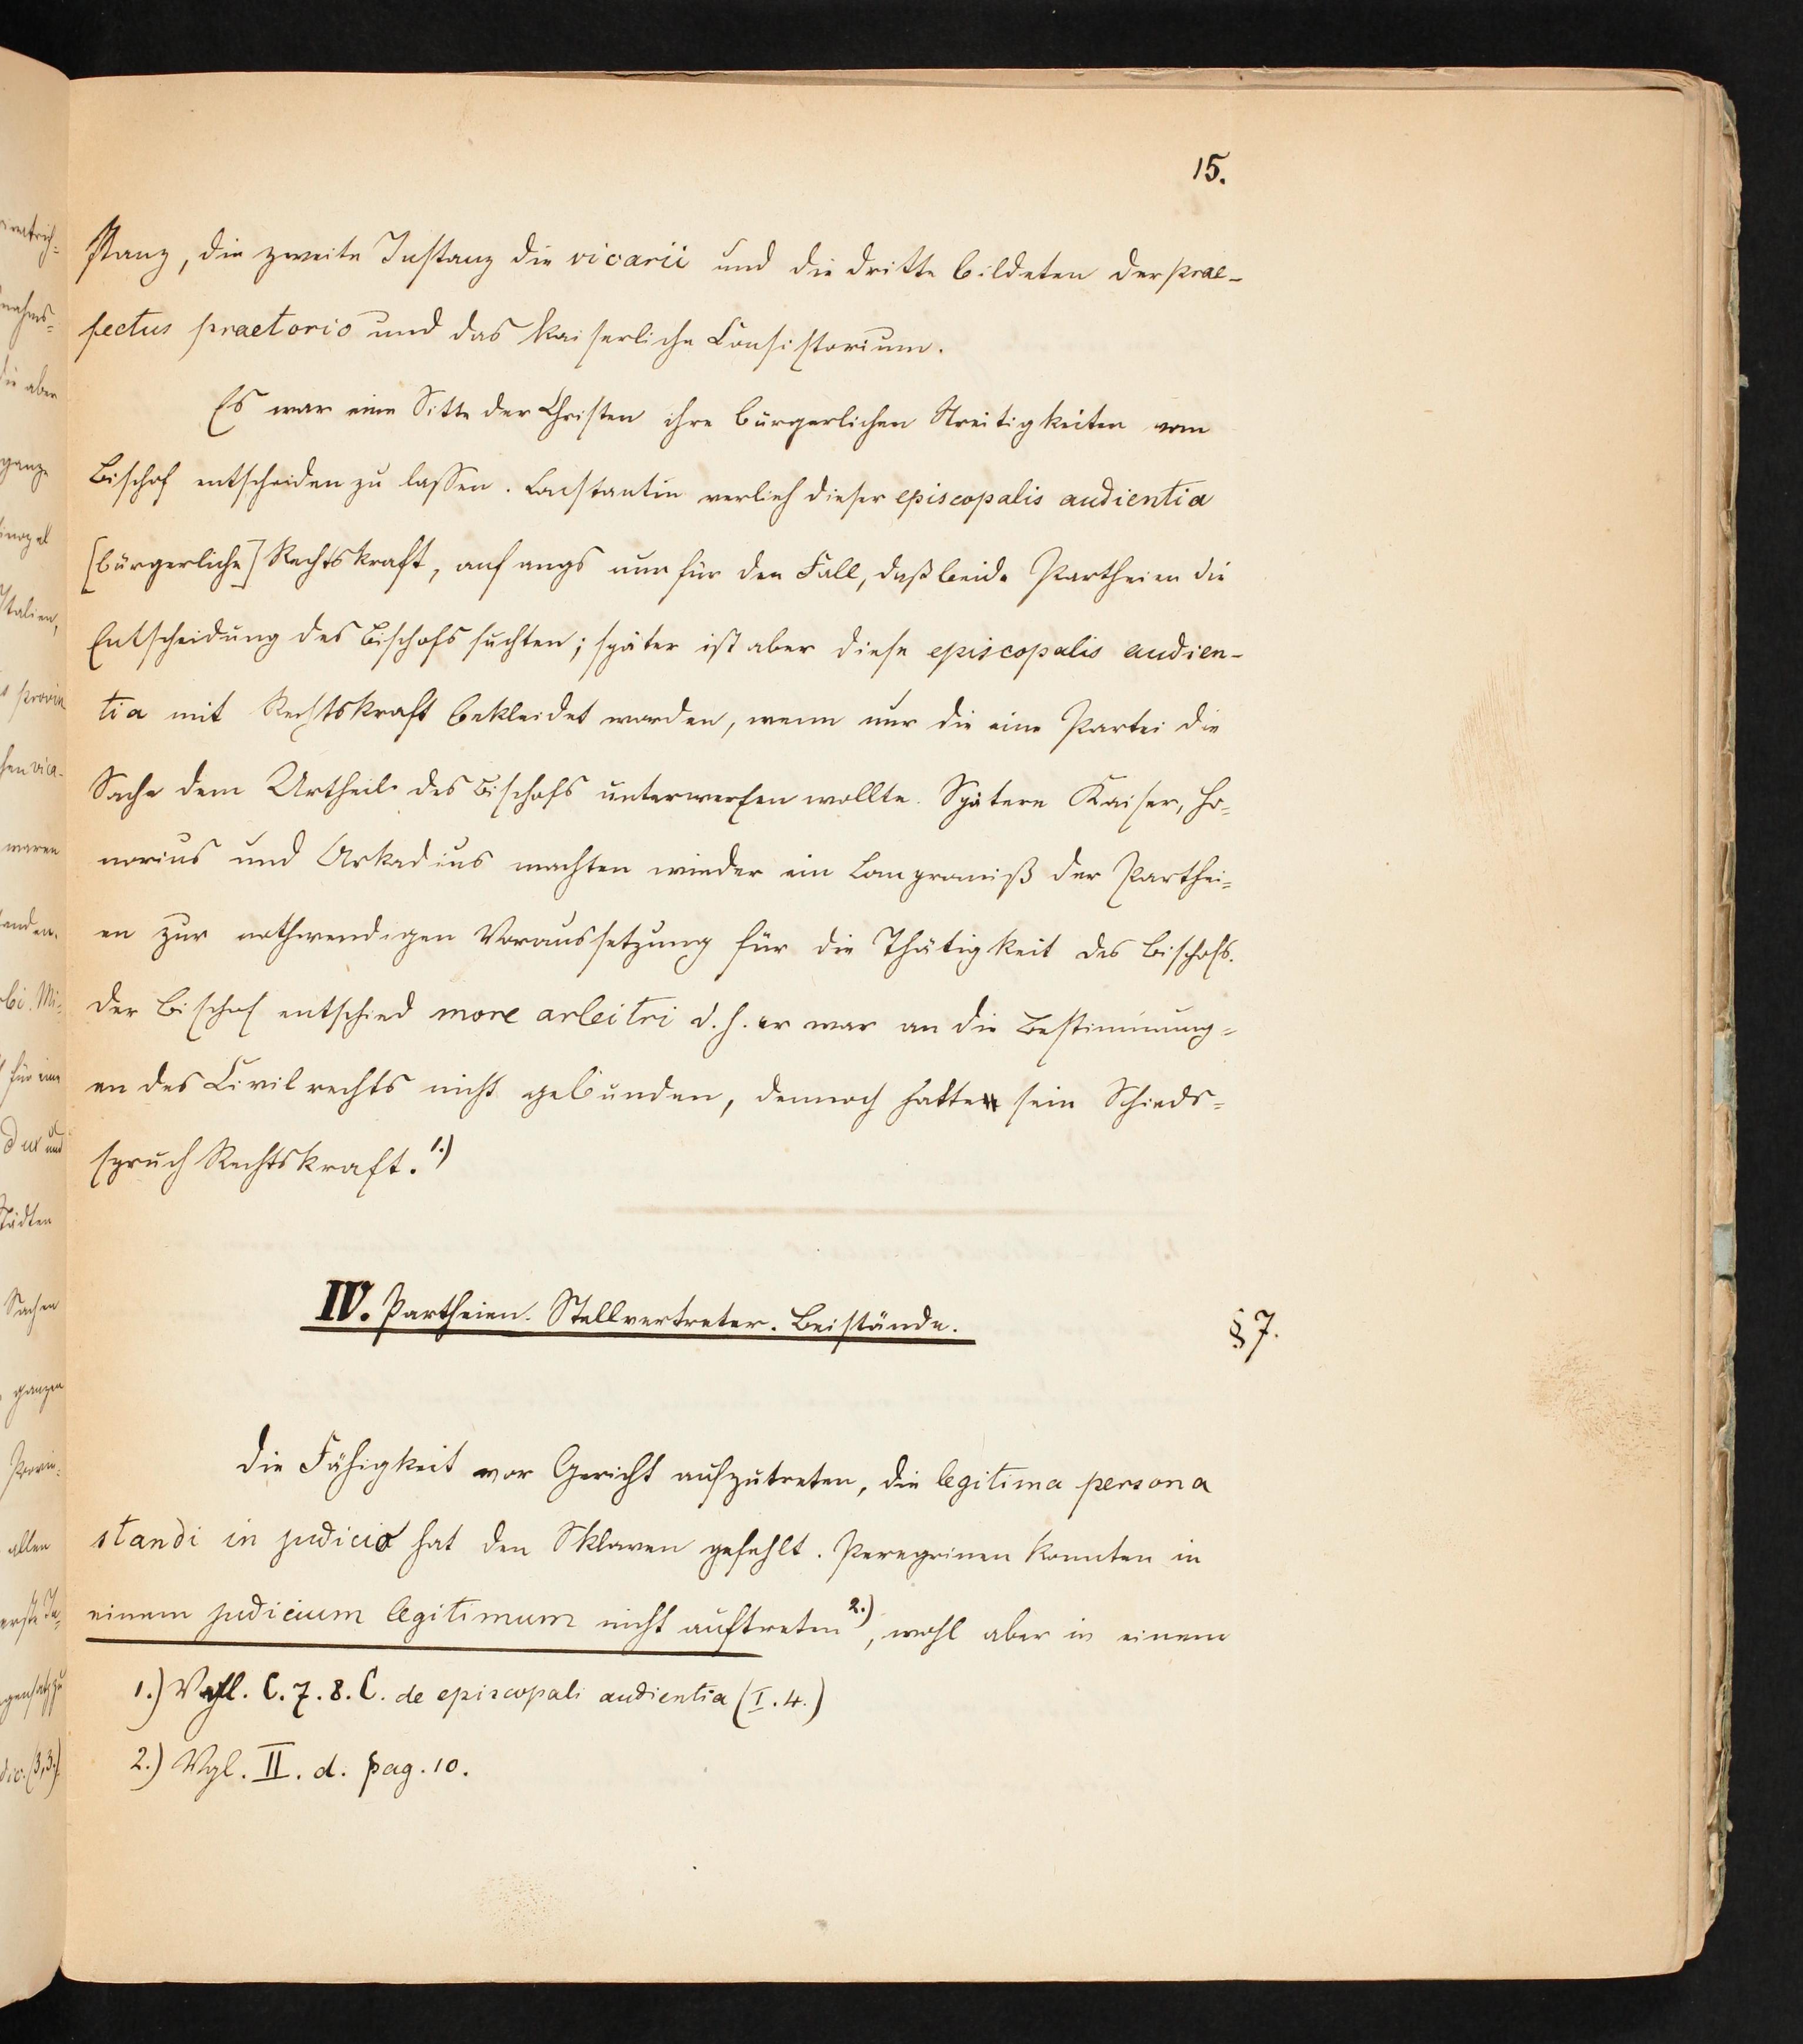 15.
stanz, die zweite Instanz die vicarii und die dritte bildeten der prae-
fectus praetorio und das kaiserliche Consistorium.
Es war eine Sitte der Christen ihre bürgerlichen Streitigkeiten vom
Bischof entscheiden zu lassen. Constantin verlieh dieser episcopalis audientia
[bürgerliche] Rechtskraft, anfangs nur für den Fall, daß beide Partheien die
Entscheidung des Bischofs suchten; später ist aber diese episcopalis audien-
tia mit Rechtskraft bekleidet worden, wenn nur die eine Partei die
Sache dem Urtheile des Bischofs unterwerfen wollte. Spätere Kaiser, Ho-
norius und Arkadius machten wieder ein Compromiß der Parthei-
en zur nothwendigen Voraussetzung für die Thätigkeit des Bischofs.
Der Bischof entschied more arbitri d. h. er war an die Bestimmung-
en des Civilrechts nicht gebunden, dennoch hatte sein Schieds-
spruch Rechtskraft. 1.)
IV. Partheien. Stellvertreter. Beistände.
§ 7.
Die Fähigkeit vor Gericht aufzutreten, die legitima persona
standi in judicio hat den Sklaven gefehlt. Peregrinen konnten in
einem judicium legitimum nicht auftreten 2.), wohl aber in einem
1.) Vgl. C. 7. 8. C. de episcopali audientia (I. 4.)
2.) Vgl. II. d. pag. 10.